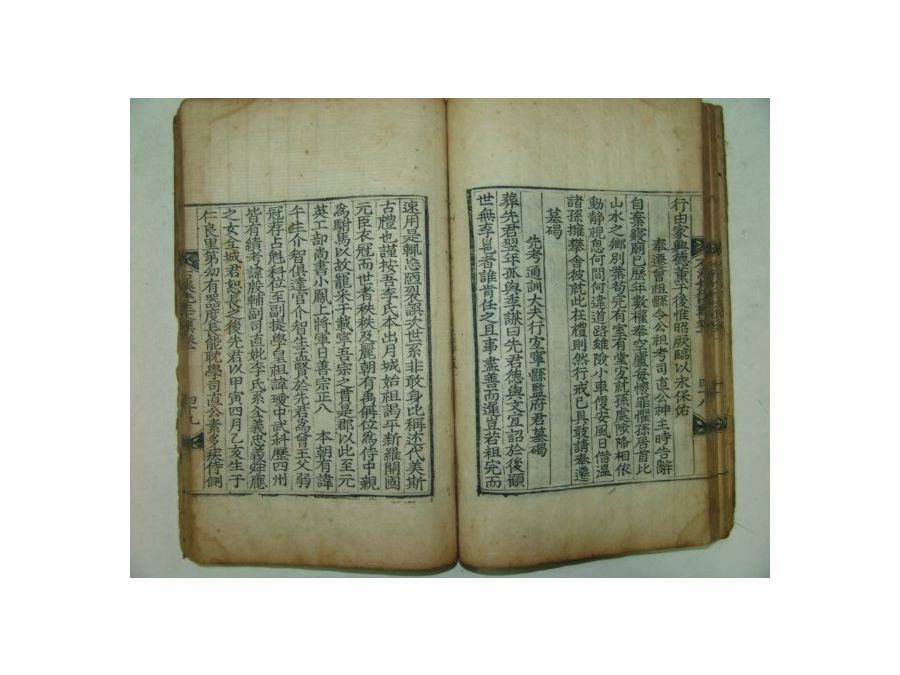 行由家興德薰千後惟昭厥臨以永保佑
奉遷曾祖縣令公祖考司直公神主時告辭
自奉寢廟已歷年數權奉空廬每懷罪懼孫居首比
山水之鄉別葉苟完有室有堂定就孫處陟降相依
動靜視息何間何違道路雖險小車便安風日借溫
諸孫擁攀舍彼就此在禮則然行戒已具敢請奉遷
墓碣
先考通訓大夫行定寧縣監府君墓碣
葬先君翌年孤與季謀曰先君德與文宜詔於後顧
世無李邕者誰肯任之且事盡善而遲豈若粗完而
速用是輒忘陋裂誤次世系非敢身比稱述代美斯
古禮也謹按吾李氏本出月城始祖謁平新羅開國
元臣衣冠而世者秩秩及麗朝有禹偁位爲侍中親
爲駙馬以故寵米于載寧吾宗之貫是郡以此至元
英工部尚書小鳳上將軍日善宗正八 本朝有諱
午生介智俱達官介智生孟賢於先君爲曾王父弱
冠荐占魁科位至副提學皇祖諱璦中武科歷四州
皆有績考諱殷輔副司直妣李氏系全義忠義𨓏應
之女全城君恕長之後先君以甲寅四月乙亥生于
仁良里第幼有器度長能耽學司直公素多疾侍側
四十八
四十九